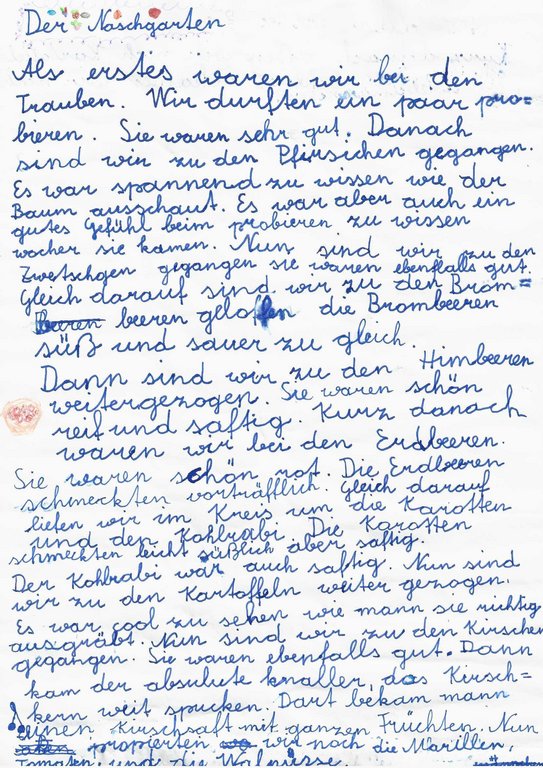 Der Naschgarten
Als erstes waren wir bei den
Trauben. Wir durften ein paar pro=
bieren. Sie waren sehr gut. Danach
sind wir zu den Pfirsichen gegangen.
Es war spannend zu wissen wie der
Baum ausschaut. Es war aber auch ein
gutes Gefühl beim probieren zu wissen
wocher sie kamen. Nun sind wir zu den
Zwetschgen gegangen sie waren ebenfalls gut.
Gleich darauf sind wir zu den Brom=
beeren geloffen die Brombeeren
süß und sauer zu gleich.
Dann sind wir zu den Himbeeren
weitergezogen. Sie waren schön
reif und saftig. Kurz danach
waren wir bei den Erdbeeren.
Sie waren schön rot. Die Erdbeeren
schmeckten vorträfflich. Gleich darauf
liefen wir im Kreis um die Karotten
und den Kohlrabi. Die Karotten
schmeckten leicht süßlich aber saftig.
Der Kohlrabi war auch saftig. Nun sind
wir zu den Kartoffeln weiter gezogen.
Es war cool zu sehen wie mann sie richtig
ausgräbt. Nun sind wir zu den Kirschen
gegangen. Sie waren ebenfalls gut. Dann
kam der absulute knaller, das Kirsch=
kern weit spucken. Dart bekam mann
einen Kirschsaft mit ganzen Früchten. Nun
propierten wir noch die Marillen,
Tomaten und die Walnüsse.